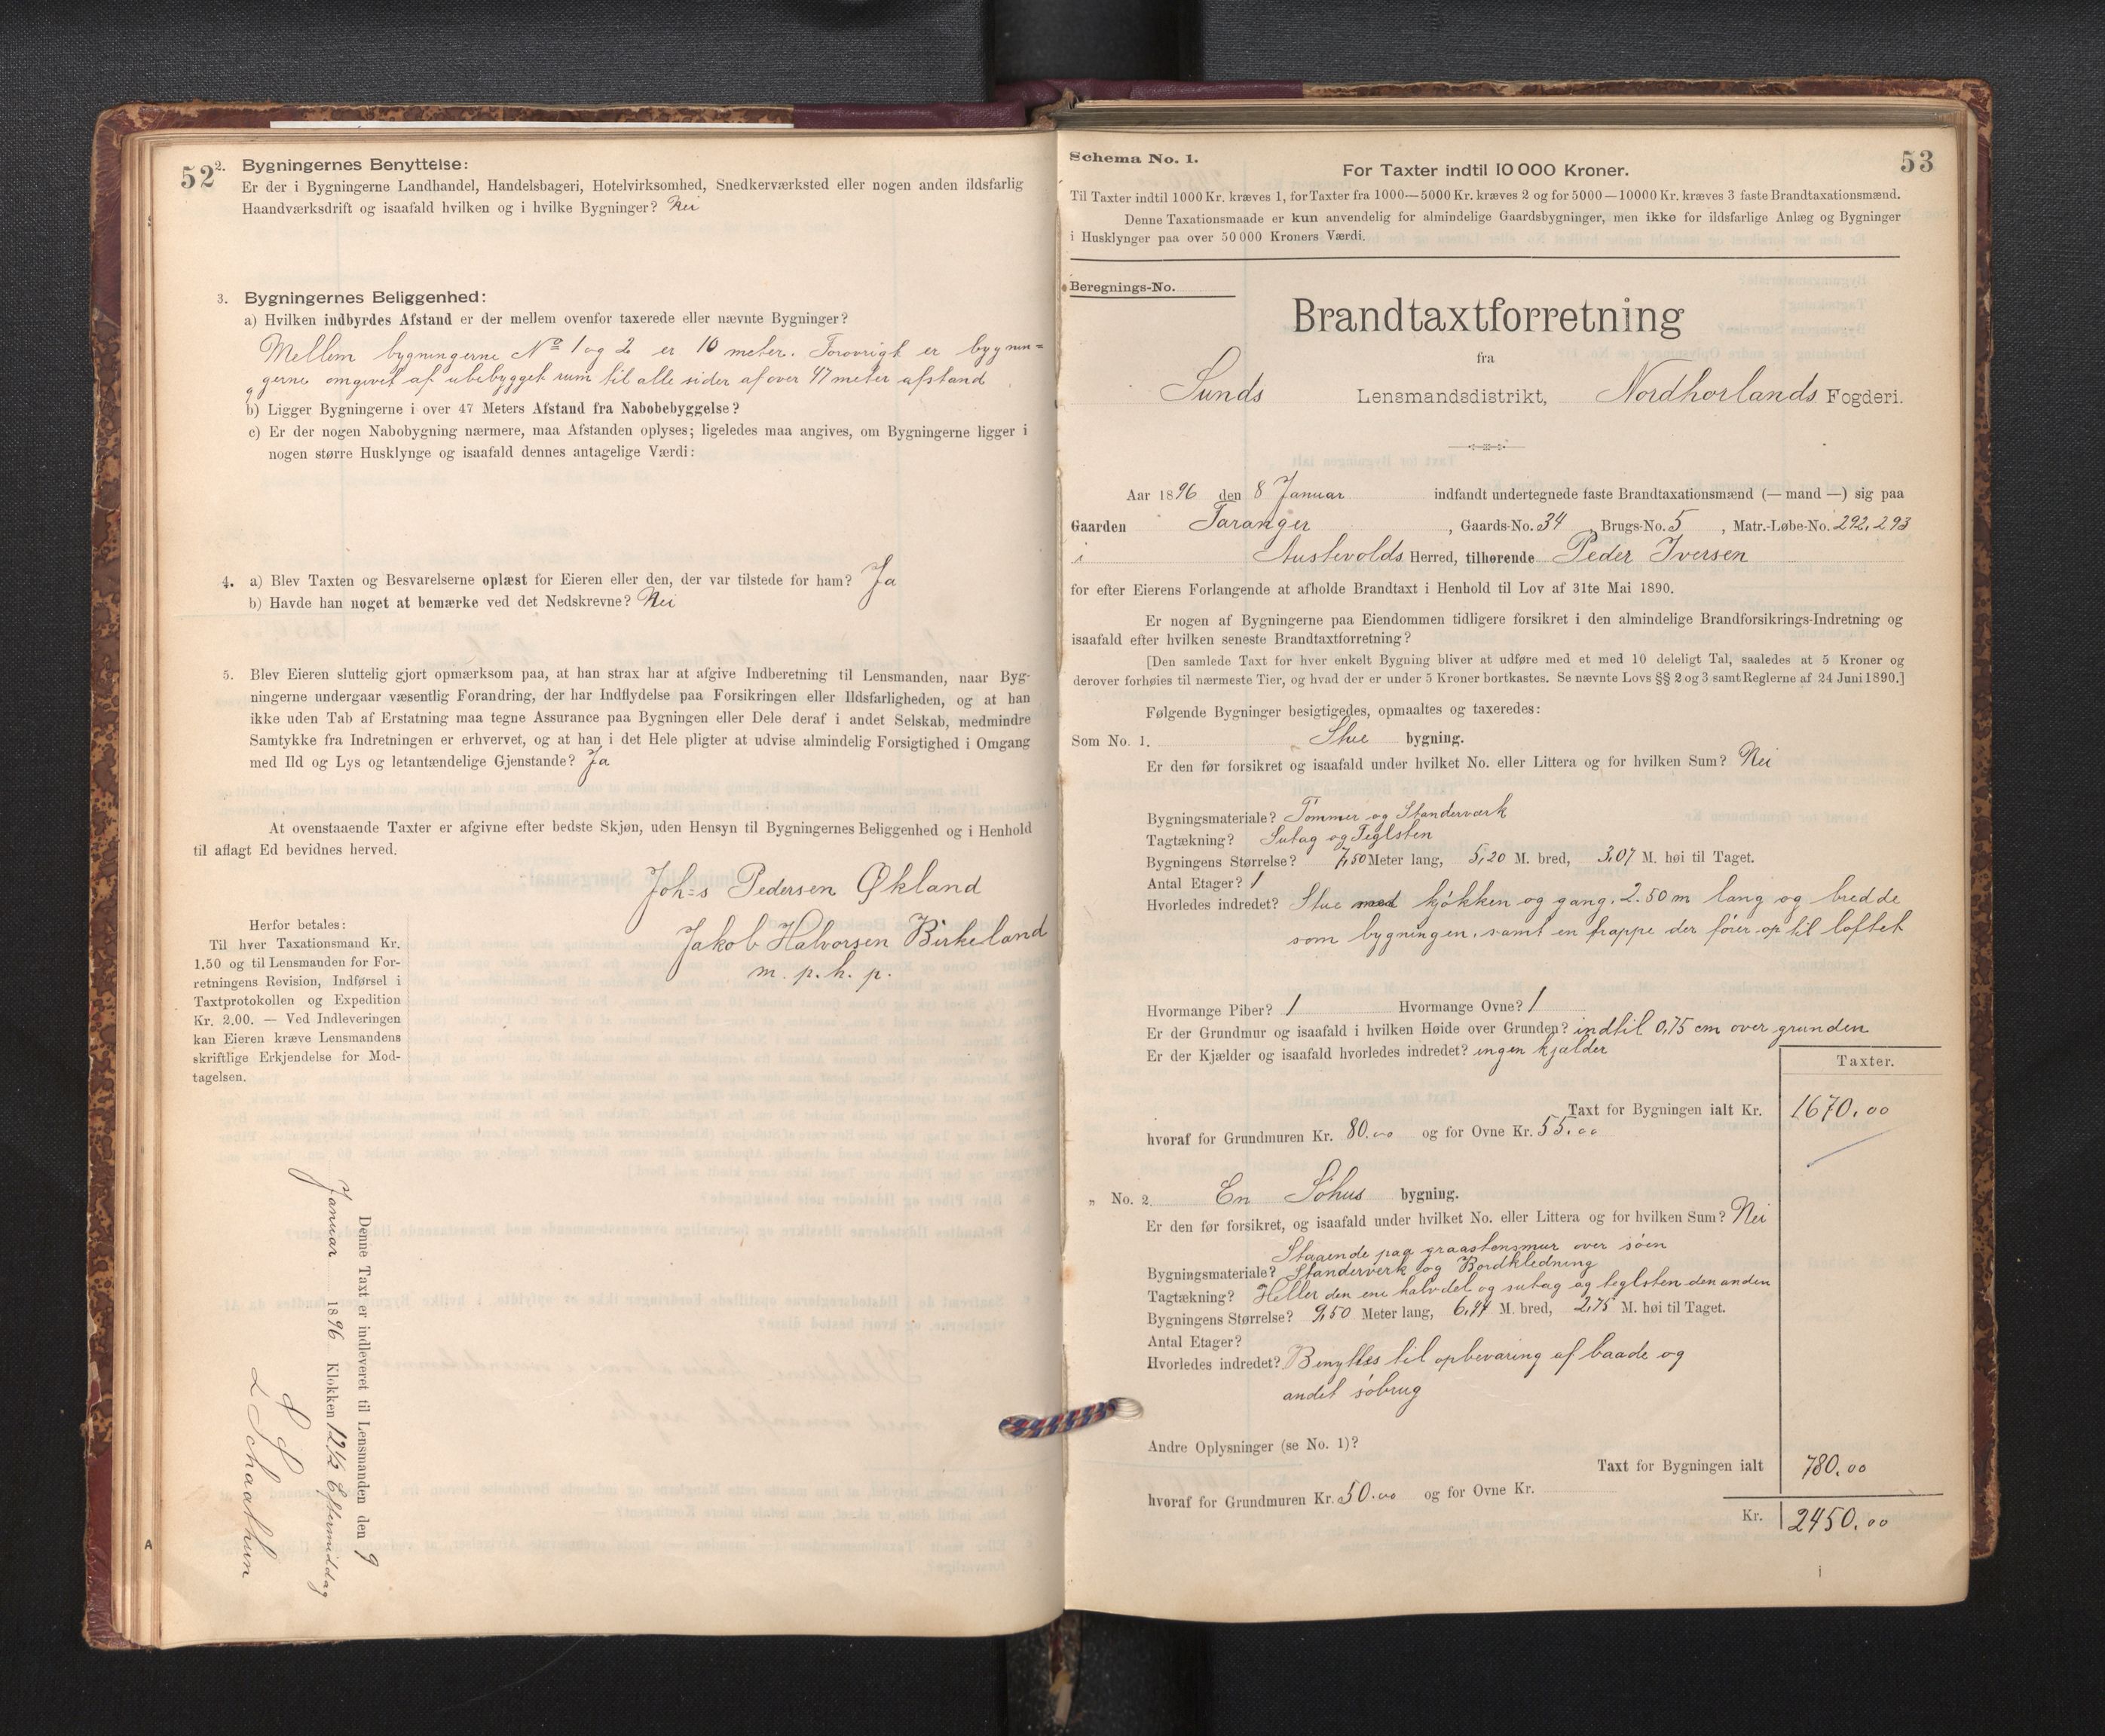 52
2. Bygningernes Benyttelse:
Er der i Bygningerne Landhandel, Handelsbageri, Hotelvirksomhed, Snedkerværksted eller nogen anden ildsfarlig
Haandværksdrift og isaafald hvilken og i hvilke Bygninger? Nei
3. Bygningernes Beliggenhed:
a) Hvilken indbyrdes Afstand er der mellem ovenfor taxerede eller nævnte Bygninger?
Mellem bygningerne No 1 og 2 er 10 meter. Forøvrigt er bygnin=
gerne omgivet af ubebygget rum til alle sider af over 47 meter afstand
b) Ligger Bygningerne i over 47 Meters Afstand fra Nabobebyggelse?
c) Er der nogen Nabobygning nærmere, maa Afstanden oplyses; ligeledes maa angives, om Bygningerne ligger i
nogen større Husklynge og isaafald dennes antagelige Værdi:
4. a) Blev Taxten og Besvarelserne oplæst for Eieren eller den, der var tilstede for ham? Ja
b) Havde han noget at bemærke ved det Nedskrevne? Nei
5. Blev Eieren sluttelig gjort opmærksom paa, at han strax har at afgive Indberetning til Lensmanden, naar Byg-
ningerne undergaar væsentlig Forandring, der har Indflydelse paa Forsikringen eller Ildsfarligheden, og at han
ikke uden Tab af Erstatning maa tegne Assurance paa Bygningen eller Dele deraf i andet Selskab, medmindre
Samtykke fra Indretningen er erhvervet, og at han i det Hele pligter at udvise almindelig Forsigtighed i Omgang
med Ild og Lys og letantændelige Gjenstande? Ja
At ovenstaaende Taxter er afgivne efter bedste Skjøn, uden Hensyn til Bygningernes Beliggenhed og i Henhold
til aflagt Ed bevidnes herved.
Joh=s Pedersen Økland
Jakob Halvorsen Birkeland
m. p. h. p.
Herfor betales:
Til hver Taxationsmand Kr.
1.50 og til Lensmanden for For-
retningens Revision, Indførsel i
Taxtprotokollen og Expedition
Kr. 2.00. — Ved Indleveringen
kan Eieren kræve Lensmandens
skriftlige Erkjendelse for Mod-
tagelsen.
Denne Taxt er indleveret til Lensmanden den 9
Januar 1896 Klokken 12½ Eftermiddag
A
53
Schema No. 1.
For Taxter indtil 10 000 Kroner.
Til Taxter indtil 1000 Kr. kræves 1, for Taxter fra 1000—5000 Kr. kræves 2 og for 5000—10000 Kr. kræves 3 faste Brandtaxationsmænd.
Denne Taxationsmaade er kun anvendelig for almindelige Gaardsbygninger, men ikke for ildsfarlige Anlæg og Bygninger
i Husklynger paa over 50 000 Kroners Værdi.
Beregnings-No.
Brandtaxtforretning
fra
Sunds Lensmandsdistrikt, Nordhorlands Fogderi.
Aar 1896 den 8 Januar indfandt undertegnede faste Brandtaxationsmænd (— mand —) sig paa
Gaarden Taranger, Gaards-No. 34, Brugs-No. 5, Matr.-Løbe-No. 292, 293
i Austevolds Herred, tilhørende Peder Iversen
for efter Eierens Forlangende at afholde Brandtaxt i Henhold til Lov af 31te Mai 1890.
Er nogen af Bygningerne paa Eiendommen tidligere forsikret i den almindelige Brandforsikrings-Indretning og
isaafald efter hvilken seneste Brandtaxtforretning?
[Den samlede Taxt for hver enkelt Bygning bliver at udføre med et med 10 deleligt Tal, saaledes at 5 Kroner og
derover forhøies til nærmeste Tier, og hvad der er under 5 Kroner bortkastes. Se nævnte Lovs §§ 2 og 3 samt Reglerne af 24 Juni 1890.]
Følgende Bygninger besigtigedes, opmaaltes og taxeredes:
Som No. 1. Stue bygning.
Er den før forsikret og isaafald under hvilket No. eller Littera og for hvilken Sum? Nei
Bygningsmateriale? Tømmer og Standerværk
Tagtækning? Sutag og Teglsten
Bygningens Størrelse? 7,50 Meter lang, 5,20 M. bred, 3,07 M. høi til Taget.
Antal Etager? 1
Hvorledes indredet? Stue med kjøkken og gang. 2.50 m lang og bredde
som bygningen, samt en trappe der fører op til loftet
Hvormange Piber? 1 Hvormange Ovne? 1
Er der Grundmur og isaafald i hvilken Høide over Grunden? indtil 0,75 cm over grunden
Er der Kjælder og isaafald hvorledes indredet? ingen kjælder
Taxter.
Taxt for Bygningen ialt Kr. 1670.00
hvoraf for Grundmuren Kr. 80.00 og for Ovne Kr. 55.00
„ No. 2 En Søhus bygning.
Er den før forsikret, og isaafald under hvilket No. eller Littera og for hvilken Sum? Nei
Staaende paa graastensmur over søen
Bygningsmateriale? Standerverk og Bordkledning
Tagtækning? Heller den ene halvdel og sutag og teglsten den anden
Bygningens Størrelse? 9,50 Meter lang, 6,44 M. bred, 2,75 M. høi til Taget.
Antal Etager?
Hvorledes indredet? Benyttes til opbevaring af baade og
andet søbrug
Andre Oplysninger (se No. 1)?
Taxt for Bygningen ialt 780.00
hvoraf for Grundmuren Kr. 50.00 og for Ovne Kr.
Kr. 2450.00